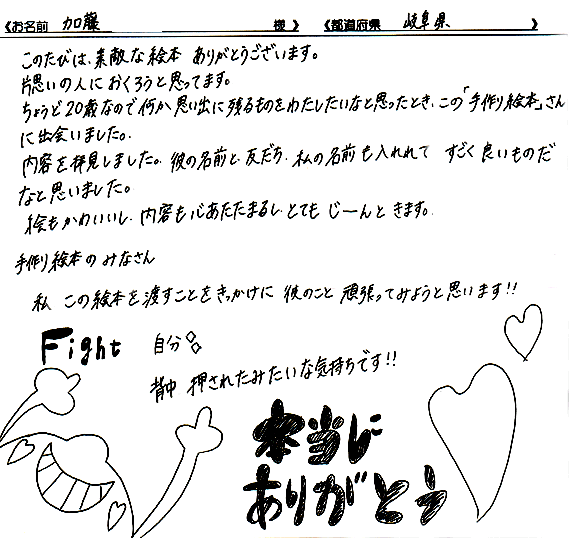 《お名前 加藤 様》 《都道府県 岐阜県 》
このたびは、素敵な絵本 ありがとうございます。
片思いの人におくろうと思ってます。
ちょうど20歳なので何か思い出に残るものをわたしたいなと思ったとき、この「手作り絵本」さん
に出会いました。
内容を拝見しました。彼の名前と、友だち、私の名前も入れれて すごく良いものだ
なと思いました。
絵もかわいいし、内容も心あたたまるし、とても じーんと きます。
手作り絵本の みなさん
私 この絵本を渡すことをきっかけに 彼のこと 頑張ってみようと思います!!
Fight 自分
背中 押されたみたいな気持ちです!!
本当に
ありがとう